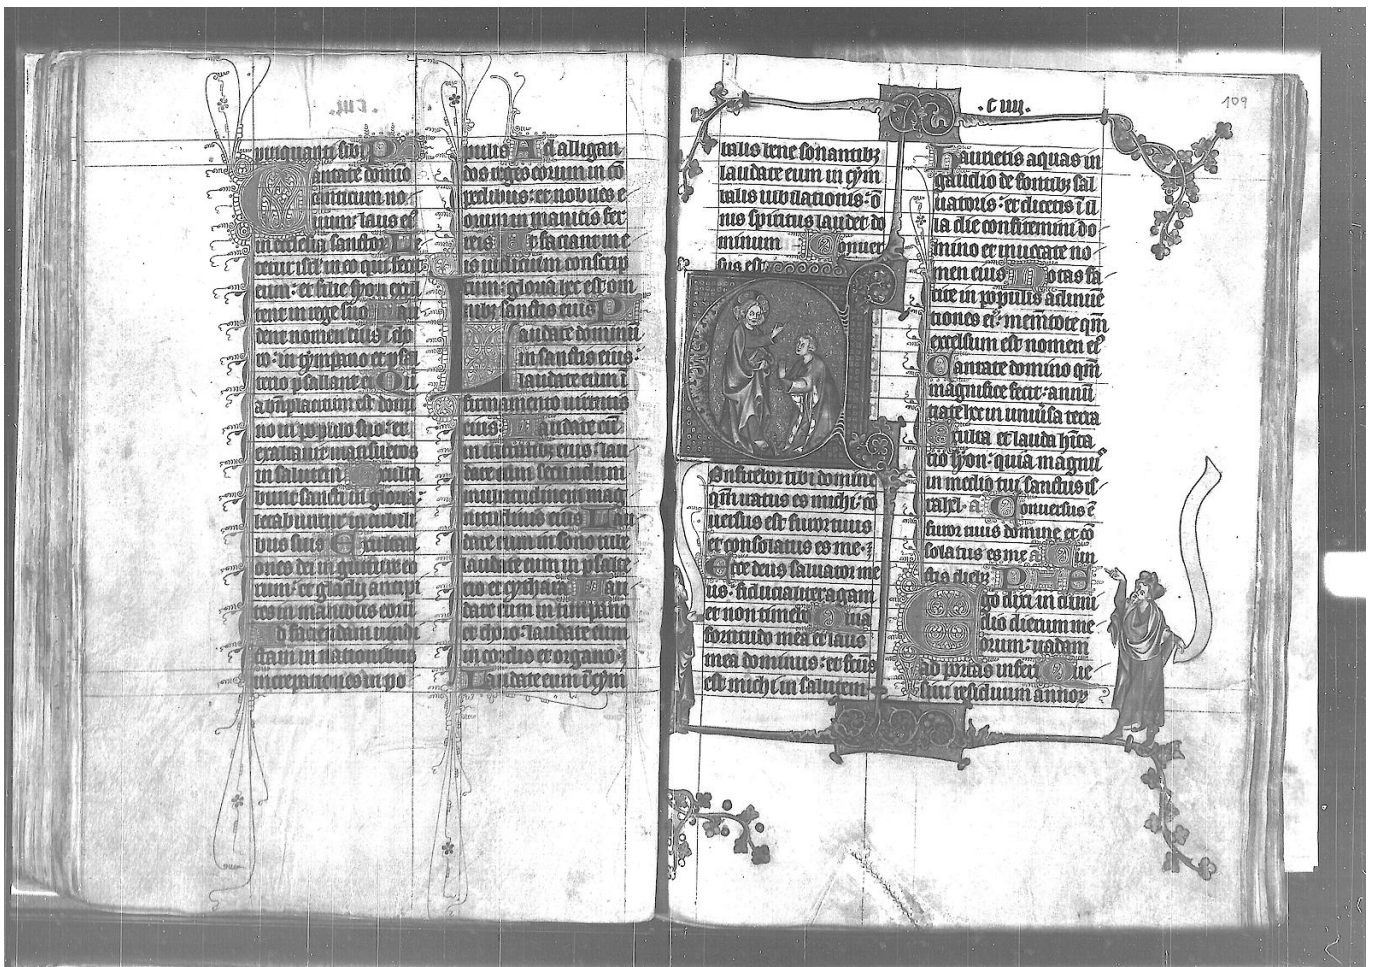 piuquanti sibi P
Cantate domino
canticum no
uum: laus ei9
in ecclesia sanctor Le
tetur isrl in eo qui fecit
eum: et filie syon exul
tent in rege suo Lau
dent nomen eius i cho
ro: in tympano et psal
terio psallant ei Qui
a bn̄placitum est domi
no in populo suo: et
exaltauit mansuetos
in salutem Exulta
bunt sancti in gloria:
letabuntur in cubili
bus suis Exultati
ones dei in gutture eo
rum: et gladij ancipi
tes in manibus eorū
Ad faciendam vindi
ctam in nationibus
increpationes in po
pulis Ad alligan
dos reges eorum in cō
pedibus: et nobiles e
orum in manicis fer
reis Ut faciant in e
is iudicium conscrip
tum: gloria hec est om
nibz sanctis eius P
Laudate dominū
in sanctis eius:
laudate eum ī
firmamento uirtutis
eius Laudate eū
in uirtutibz eius: lau
date eum secundum
multitudinem mag
nitudinis eius Lau
date eum in sono tube
laudate eum in psalte
rio et cythara Lau
date eum in timpano
et choro: laudate eum
in cordis et organo:
Laudate eum ī cym
.c iiij.
109
balis bene sonantibz
laudate eum in cym
balis iubilationis: ō
nis spiritus laudet do
minum Conuer
sus est
Confitebor tibi domine
qm̄ iratus es michi: cō
uersus est furor tuus
et consolatus es me
Ecce deus saluator me
us: fiducialiter agam
et non timebo Quia
fortitudo mea et laus
mea dominus: et fcūs
est michi in salutem
Haurietis aquas in
gaudio de fontibz sal
uatoris: et dicetis ī il
la die confitemini do
mino et inuocate no
men eius Notas fa
cite in populis adinuē
tiones ei9: mem̄tote qm̄
excelsum est nomen ei9
Cantate domino qm̄
magnifice fecit: annū
tiate hec in uniūsa terra
Exulta et lauda hīta
tio syon: quia magnus
in medio tui sanctus is
rahel. a Conuersus ē
furor tuus domine et cō
solatus es me a Cun
ctis diebz
Ego dixi in dimi
dio dierum me
orum: uadam
ad portas inferi Que
siui residuum annoꝝ